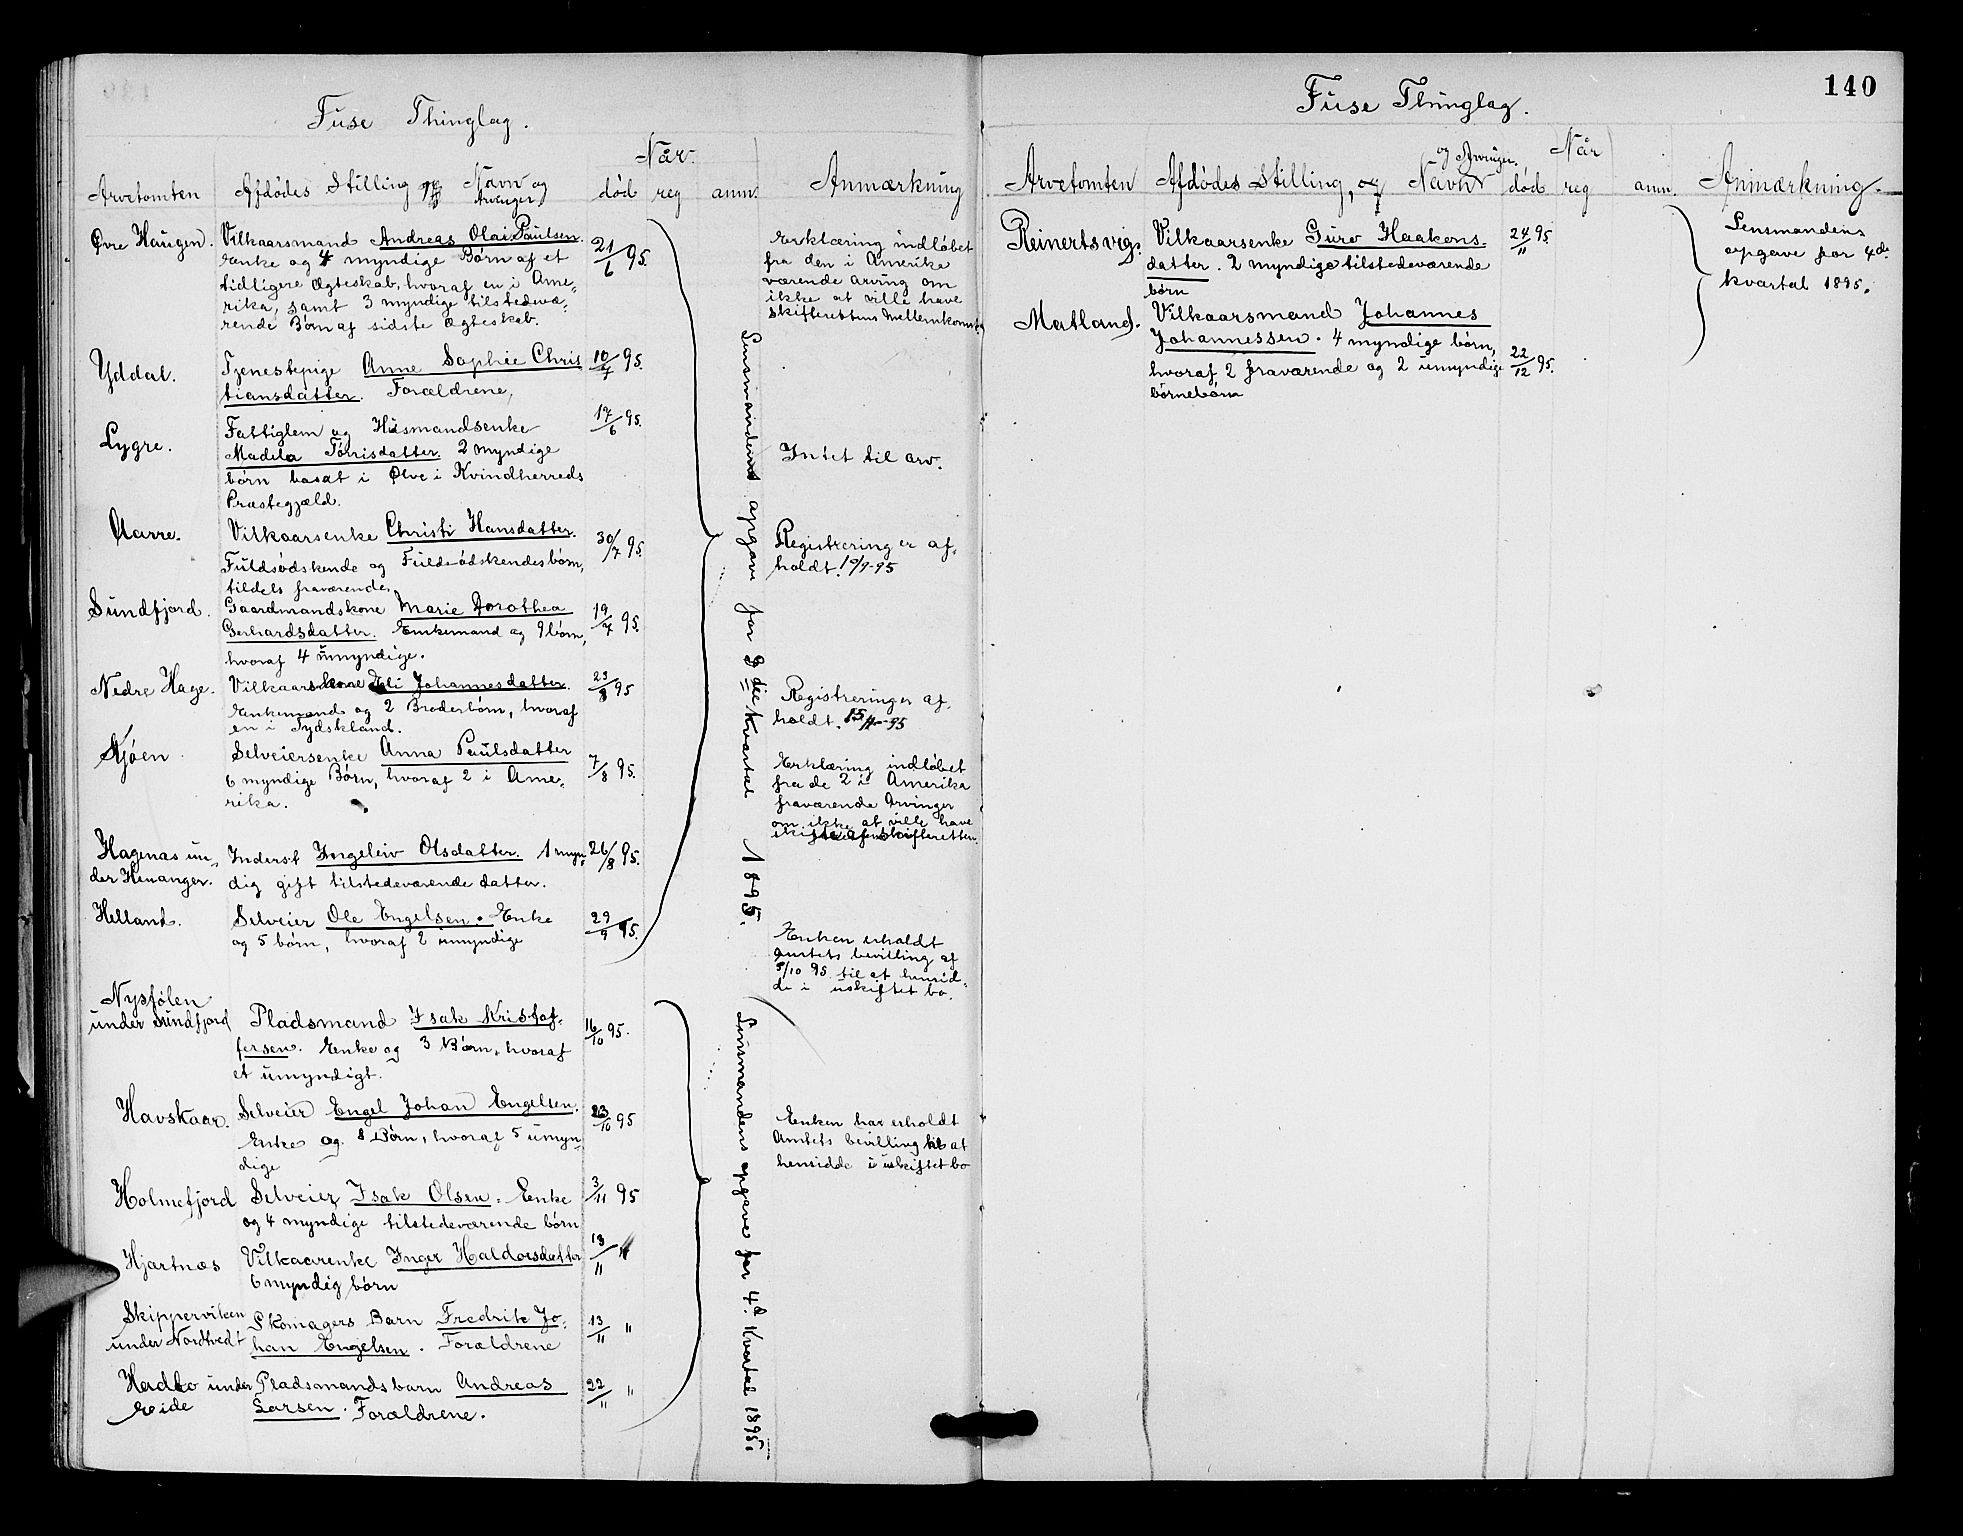 Fuse Thinglag.
Når
Arvetomten Afdödes Stilling og Navn og
Arvinger død reg anm. Anmærkning
Øvre Haugen. Vilkaarsmand Andreas Olai Paulsen. 21/6 95.
Enke og 4 myndige Børn af et
tidligere Ægteskab, hvoraf en i Ame-
rika, samt 3 myndige tilstedevæ-
rende Børn af sidste Ægteskab.
Erklæring indløbet
fra den i Amerika
værende arving om
ikke at ville have
skifterettens Mellemkomst
Yddal. Tjenestepige Anne Sophie Chris 10/7 95.
tiansdatter. Forældrene,
Lygre. Fattiglem og Husmandsenke 17/6 95.
Madela Tørrisdatter. 2 myndige
børn bosat i Ølve i Kvindherreds
Præstegjæld.
Intet til arv.
Aarre. Vilkaarsenke Christi Hansdatter. 30/7 95.
Fuldsødskende og Fuldsødskendesbørn,
tildels fraværende,
Registrering er af-
holdt 10/9-95
Sundfjord. Gaardmandskone Marie Dorothea 19/7 95.
Gerhardsdatter. Enkemand og 9 børn,
hvoraf 4 umyndige.
Nedre Hage. Vilkaarskone Eli Johannesdatter. 23/8 95
Enkemand og 2 Broderbørn, hvoraf
en i Tydskland.
Registrering er af-
holdt
Kjøen Selveiersenke Anna Paulsdatter 7/8 95.
6 myndige Børn, hvoraf 2 i Ame-
rika.
Erklæring indløbet
fra de 2 i Amerika
fraværende Arvinger
om ikke at ville have
skifte af skifteretten.
Hagenæs un-
der Henanger. Inderst Ingeleiv Olsdatter. 1 myn- 26/8 95.
dig gift tilstedeværende datter.
Helland. Selveier Ole Engelsen. Enke 29/9 95.
og 5 børn, hvoraf 2 umyndige
Enken erholdt
Amtets bevilling af
5/10 95 til at hensid-
de i uskiftet bo.
Lensmandens opgave for 3die Kvartal 1895.
Nystølen
under Sundfjord Pladsmand Isak Kristof- 16/10 95.
fersen. Enke og 3 Børn, hvoraf
et umyndigt.
Havskaar. Selveier Engel Johan Engelsen. 23/10 95
Enke og 8 Børn, hvoraf 5 umyn-
dige
Enken har erholdt
Amtets bevilling til at
hensidde i uskiftet bo
Holmefjord Selveier Isak Olsen. Enke 3/11 95
og 4 myndige tilstedeværende børn
Hjartnæs Vilkaarenke Inger Haldorsdatter 18/11 "
6 myndig børn
Skipperviken
under Nordtvedt Skomagers Barn Fredrik Jo- 13/11 "
han Engelsen. Forældrene
Hadlo under
Eide Pladsmandsbarn Andreas 22/11 "
Larsen. Forældrene.
Lensmandens opgave for 4d. Kvartal 1895.
140
Fuse Thinglag.
Når
Arvetomten Afdödes Stilling, og Navn og Arvinger. død reg anm. Anmærkning.
Reinertsvig. Vilkaarsenke Guro Haakons- 24/11 95.
datter. 2 myndige tilstedeværende
børn
Matland. Vilkaarsmand Johannes
Johannessen. 4 myndige børn, 22/12 95.
hvoraf 2 fraværende og 2 umyndige
børnebørn
Lensmandens
opgave for 4de
kvartal 1895.